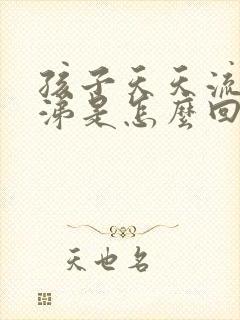 孩子天天流
涕是怎麼回
天也名